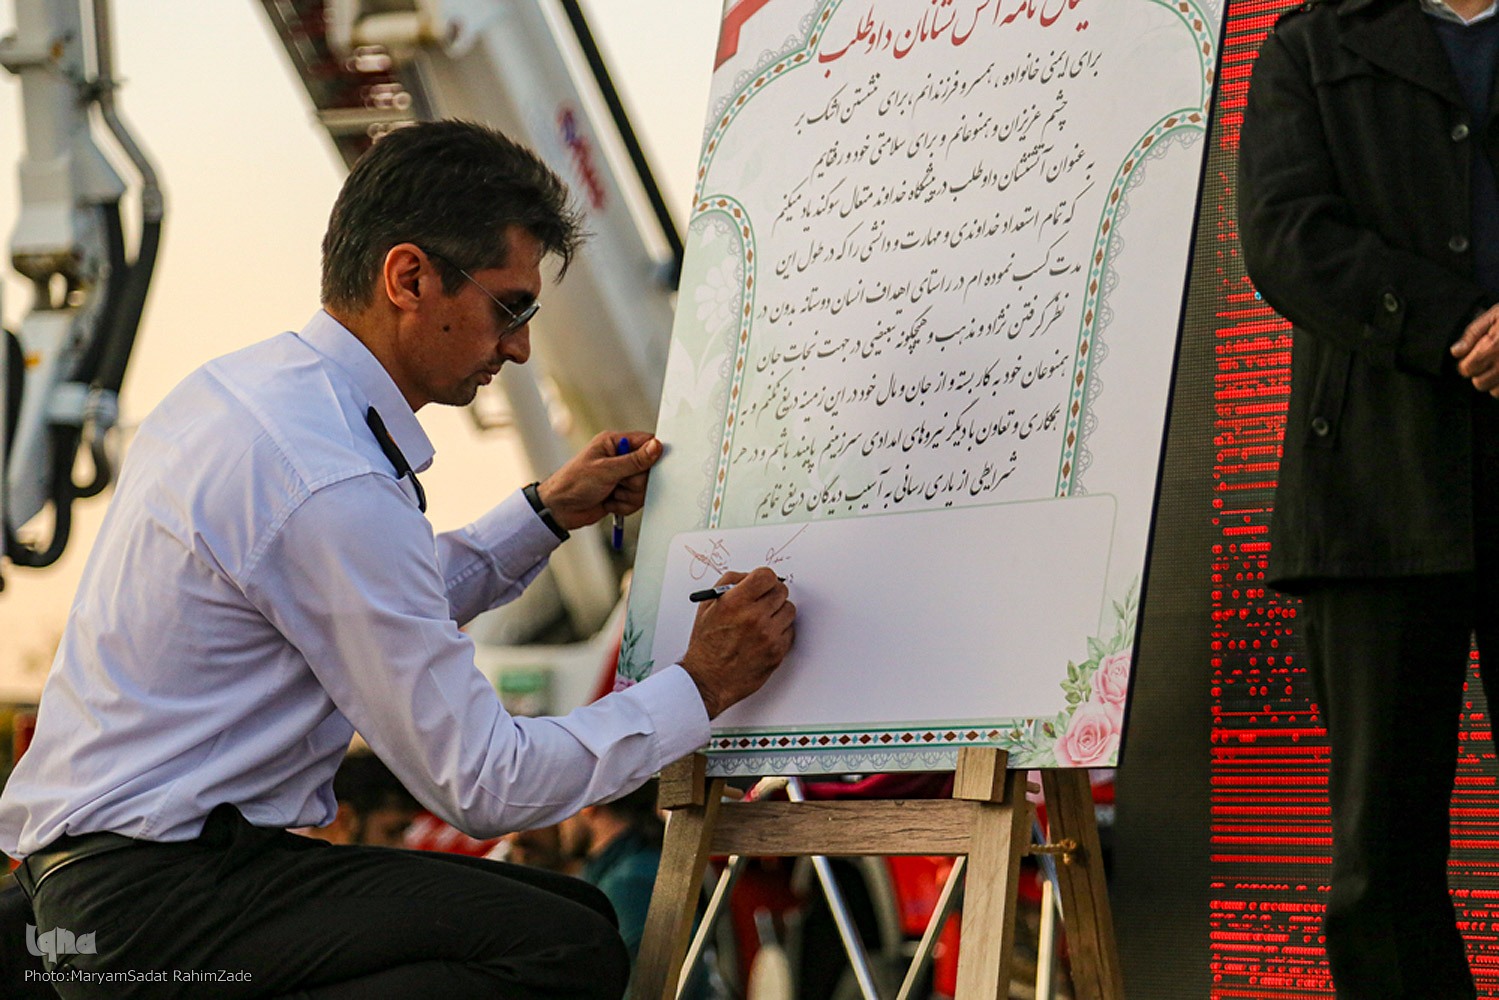 نامه آتش نشانان داوطلب
برای ایمنی خانواده ، همسر و فرزندانم ،برای نشستن اشک بر
چشم عزیزان و همنوعانم و برای سلامتی خود و رفقایم
به عنوان آتشنشان داوطلب در پیشگاه خداوند متعال سوگند یاد میکنم
که تمام استعداد خداوندی و مهارت و دانشی را که در طول این
مدت کسب نموده ام در راستای اهداف انسان دوستانه بدون در
نظر گرفتن نژاد و مذهب و هیچگونه تبعیضی در جهت نجات جان
همنوعان خود به کار بسته و از جان و مال خود در این زمینه دریغ نکنم و به
همکاری و تعاون با دیگر نیروهای امدادی سرزمینم پایبند باشم و در هر
شرایطی از یاری رسانی به آسیب دیدگان دریغ ننمایم
Iqna
Photo:MaryamSadat RahimZade